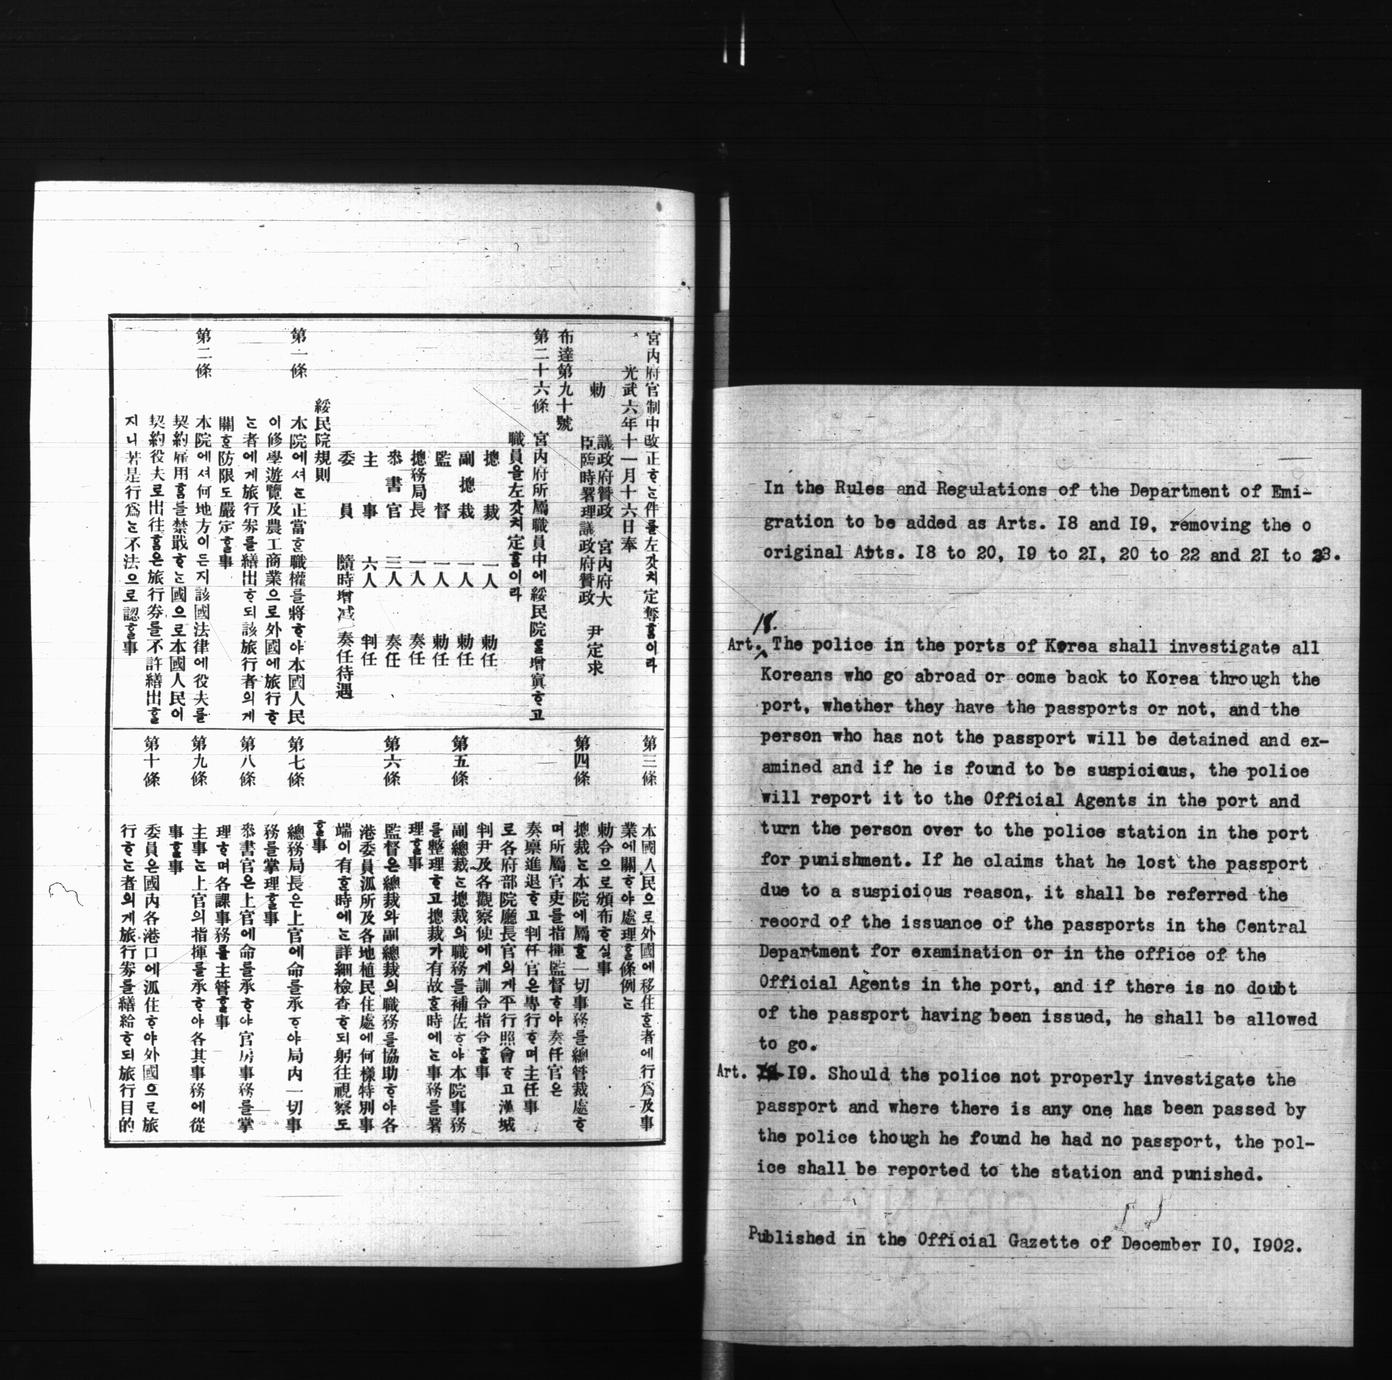 宮内府官制中改正ᄒᆞᄂᆞᆫ件를左갓치定奪홈이라
光武六年十一月十六日奉
勅
議政府贊政 宮内府大
臣臨時署理議政府贊政 尹定求
布達第九十號
第二十六條 宮内府所屬職員中에綏民院을增寘ᄒᆞ고
職員을左갓치定홈이라
摠裁 一人 勅任
副摠裁 一人 勅任
監督 一人 勅任
摠務局長 一人 奏任
叅書官 三人 奏任
主事 六人 判任
委員 隨時增减 奏任待遇
綏民院規則
第一條 本院에셔ᄂᆞᆫ正當ᄒᆞᆫ職權를將ᄒᆞ야本國人民
이修學遊覽及農工商業으로外國에旅行ᄒᆞ
ᄂᆞᆫ者에게旅行券를繕出ᄒᆞ되該旅行者의게
關ᄒᆞᆫ防限도嚴定ᄒᆞᆯ事
第二條 本院에셔何地方이든지該國法律에役夫를
契約雇用홈를禁戢ᄒᆞᄂᆞᆫ國으로本國人民이
契約役夫로出往홈은旅行券를不許繕出ᄒᆞᆯ
지니若是行爲ᄂᆞᆫ不法으로認ᄒᆞᆯ事
第三條 本國人民으로外國에移住ᄒᆞᆫ者에行爲及事
業에關ᄒᆞ야處理ᄒᆞᆯ條例ᄂᆞᆫ
勅令으로頒布ᄒᆞ실事
第四條 摠裁ᄂᆞᆫ本院에屬ᄒᆞᆫ一切事務를總管裁處ᄒᆞ
며所屬官吏를指揮監督ᄒᆞ야奏任官은
奏禀進退ᄒᆞ고判任官은專行ᄒᆞ며主任事
로各府部院廳長官의게平行照會ᄒᆞ고漢城
判尹及各觀察使에게訓令指令ᄒᆞᆯ事
第五條 副總裁ᄂᆞᆫ摠裁의職務를補佐ᄒᆞ야本院事務
를整理ᄒᆞ고摠裁가有故ᄒᆞᆫ時에ᄂᆞᆫ事務를署
理ᄒᆞᆯ事
第六條 監督은總裁와副總裁의職務를協助ᄒᆞ야各
港委員派所及各地植民住處에何樣特別事
端이有ᄒᆞᆫ時에ᄂᆞᆫ詳細檢查ᄒᆞ되躬往視察도
ᄒᆞᆯ事
第七條 總務局長은上官에命를承ᄒᆞ야局内一切事
務를掌理ᄒᆞᆯ事
第八條 叅書官은上官에命를承ᄒᆞ야官房事務를掌
理ᄒᆞ며各課事務를主管ᄒᆞᆯ事
第九條 主事ᄂᆞᆫ上官의指揮를承ᄒᆞ야各其事務에從
事ᄒᆞᆯ事
第十條 委員은國内各港口에派住ᄒᆞ야外國으로旅
行ᄒᆞᄂᆞᆫ者의게旅行券를繕給ᄒᆞ되旅行目的
In the Rules and Regulations of the Department of Emi-
gration to be added as Arts. I8 and I9, removing the o
original Abts. I8 to 20, I9 to 2I, 20 to 22 and 2I to 23.
18.
Art. The police in the ports of Korea shall investigate all
Koreans who go abroad or come back to Korea through the
port, whether they have the passports or not, and the
person who has not the passport will be detained and ex-
amined and if he is found to be suspicious, the police
will report it to the Official Agents in the port and
turn the person over to the police station in the port
for punishment. If he claims that he lost the passport
due to a suspicious reason, it shall be referred the
record of the issuance of the passports in the Central
Department for examination or in the office of the
Official Agents in the port, and if there is no doubt
of the passport having been issued, he shall be allowed
to go.
Art. I9. Should the police not properly investigate the
passport and where there is any one has been passed by
the police though he found he had no passport, the pol-
ice shall be reported to the station and punished.
Published in the Official Gazette of December IO, I902.